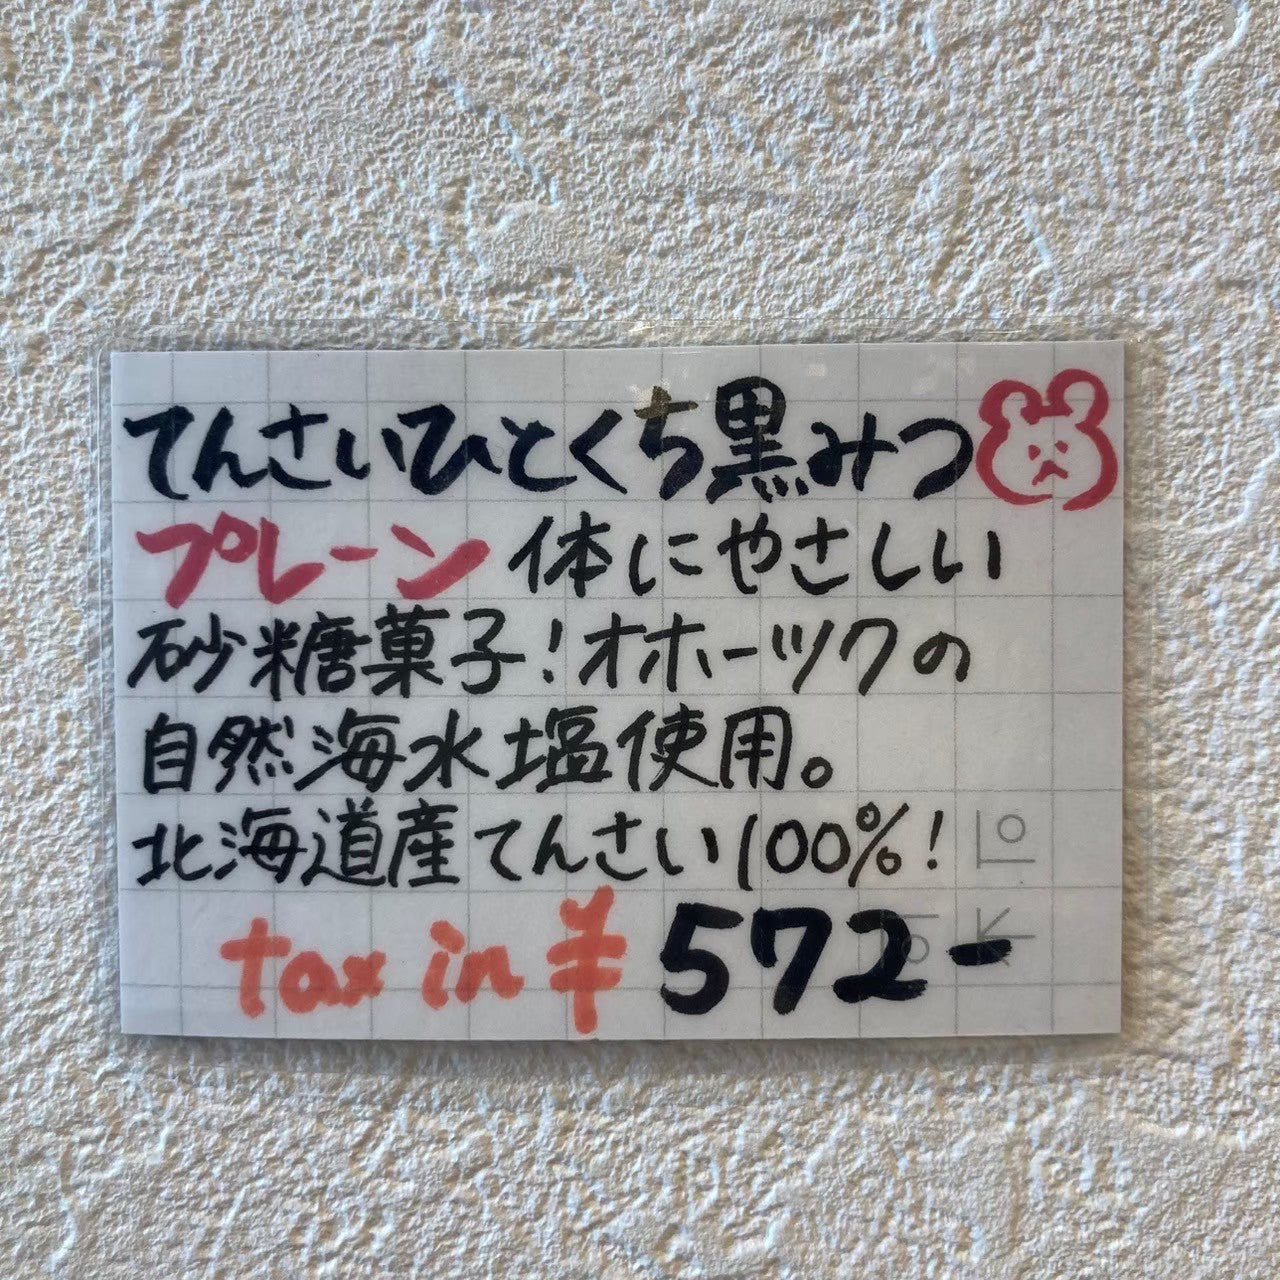 てんさいひとくち黒みつ
プレーン 体にやさしい
砂糖菓子!オホーツクの
自然海水塩使用。
北海道産てんさい100%!
tax in ¥572-